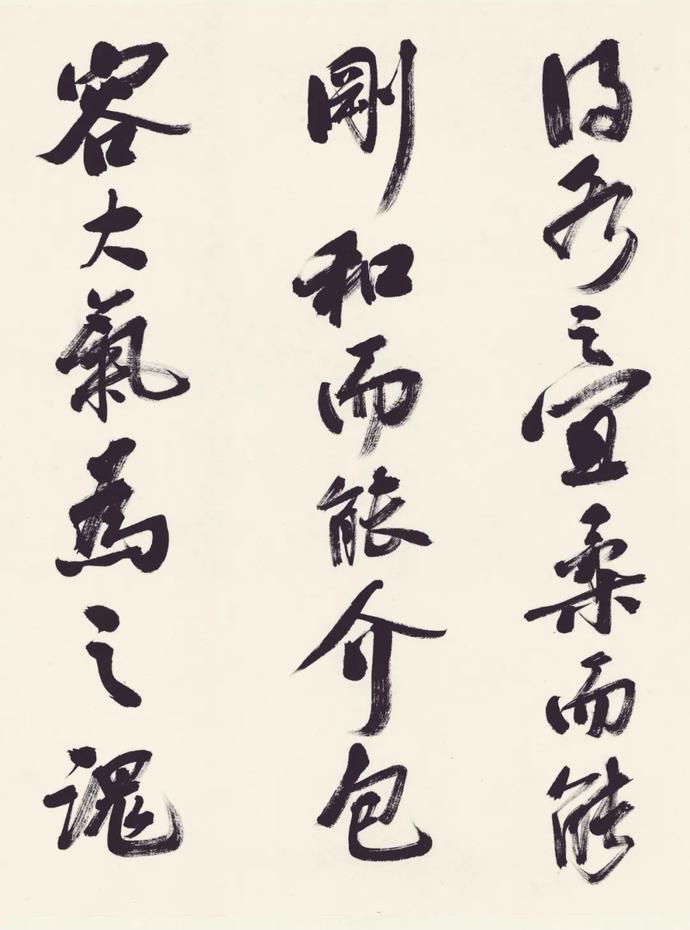 得之宜柔而能
剛和而能介包
容大氣為之魂